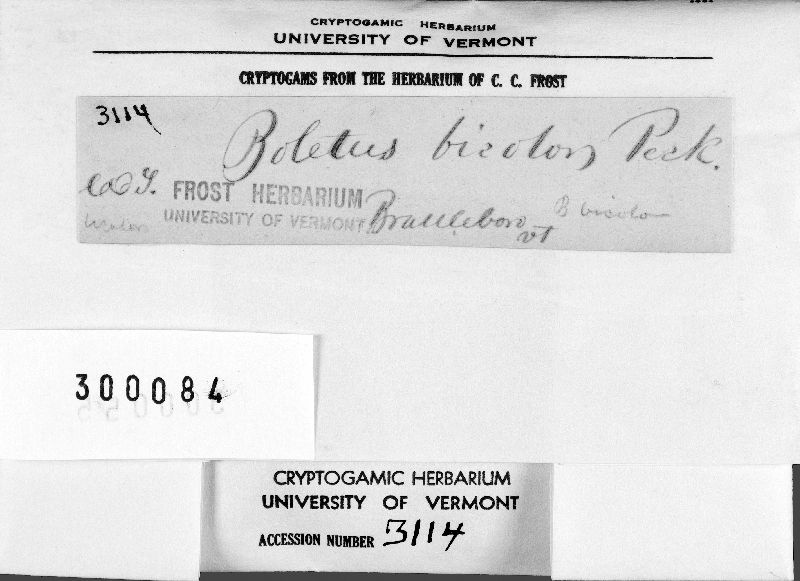 CRYPTOGAMIC HERBARIUM
UNIVERSITY OF VERMONT
CRYPTOGAMS FROM THE HERBARIUM OF C. C. FROST
3114
Boletus bicolor Peck.
FROST HERBARIUM
UNIVERSITY OF VERMONT
Brattleboro
VT
B bicolor
300084
CRYPTOGAMIC HERBARIUM
UNIVERSITY OF VERMONT
ACCESSION NUMBER 3114